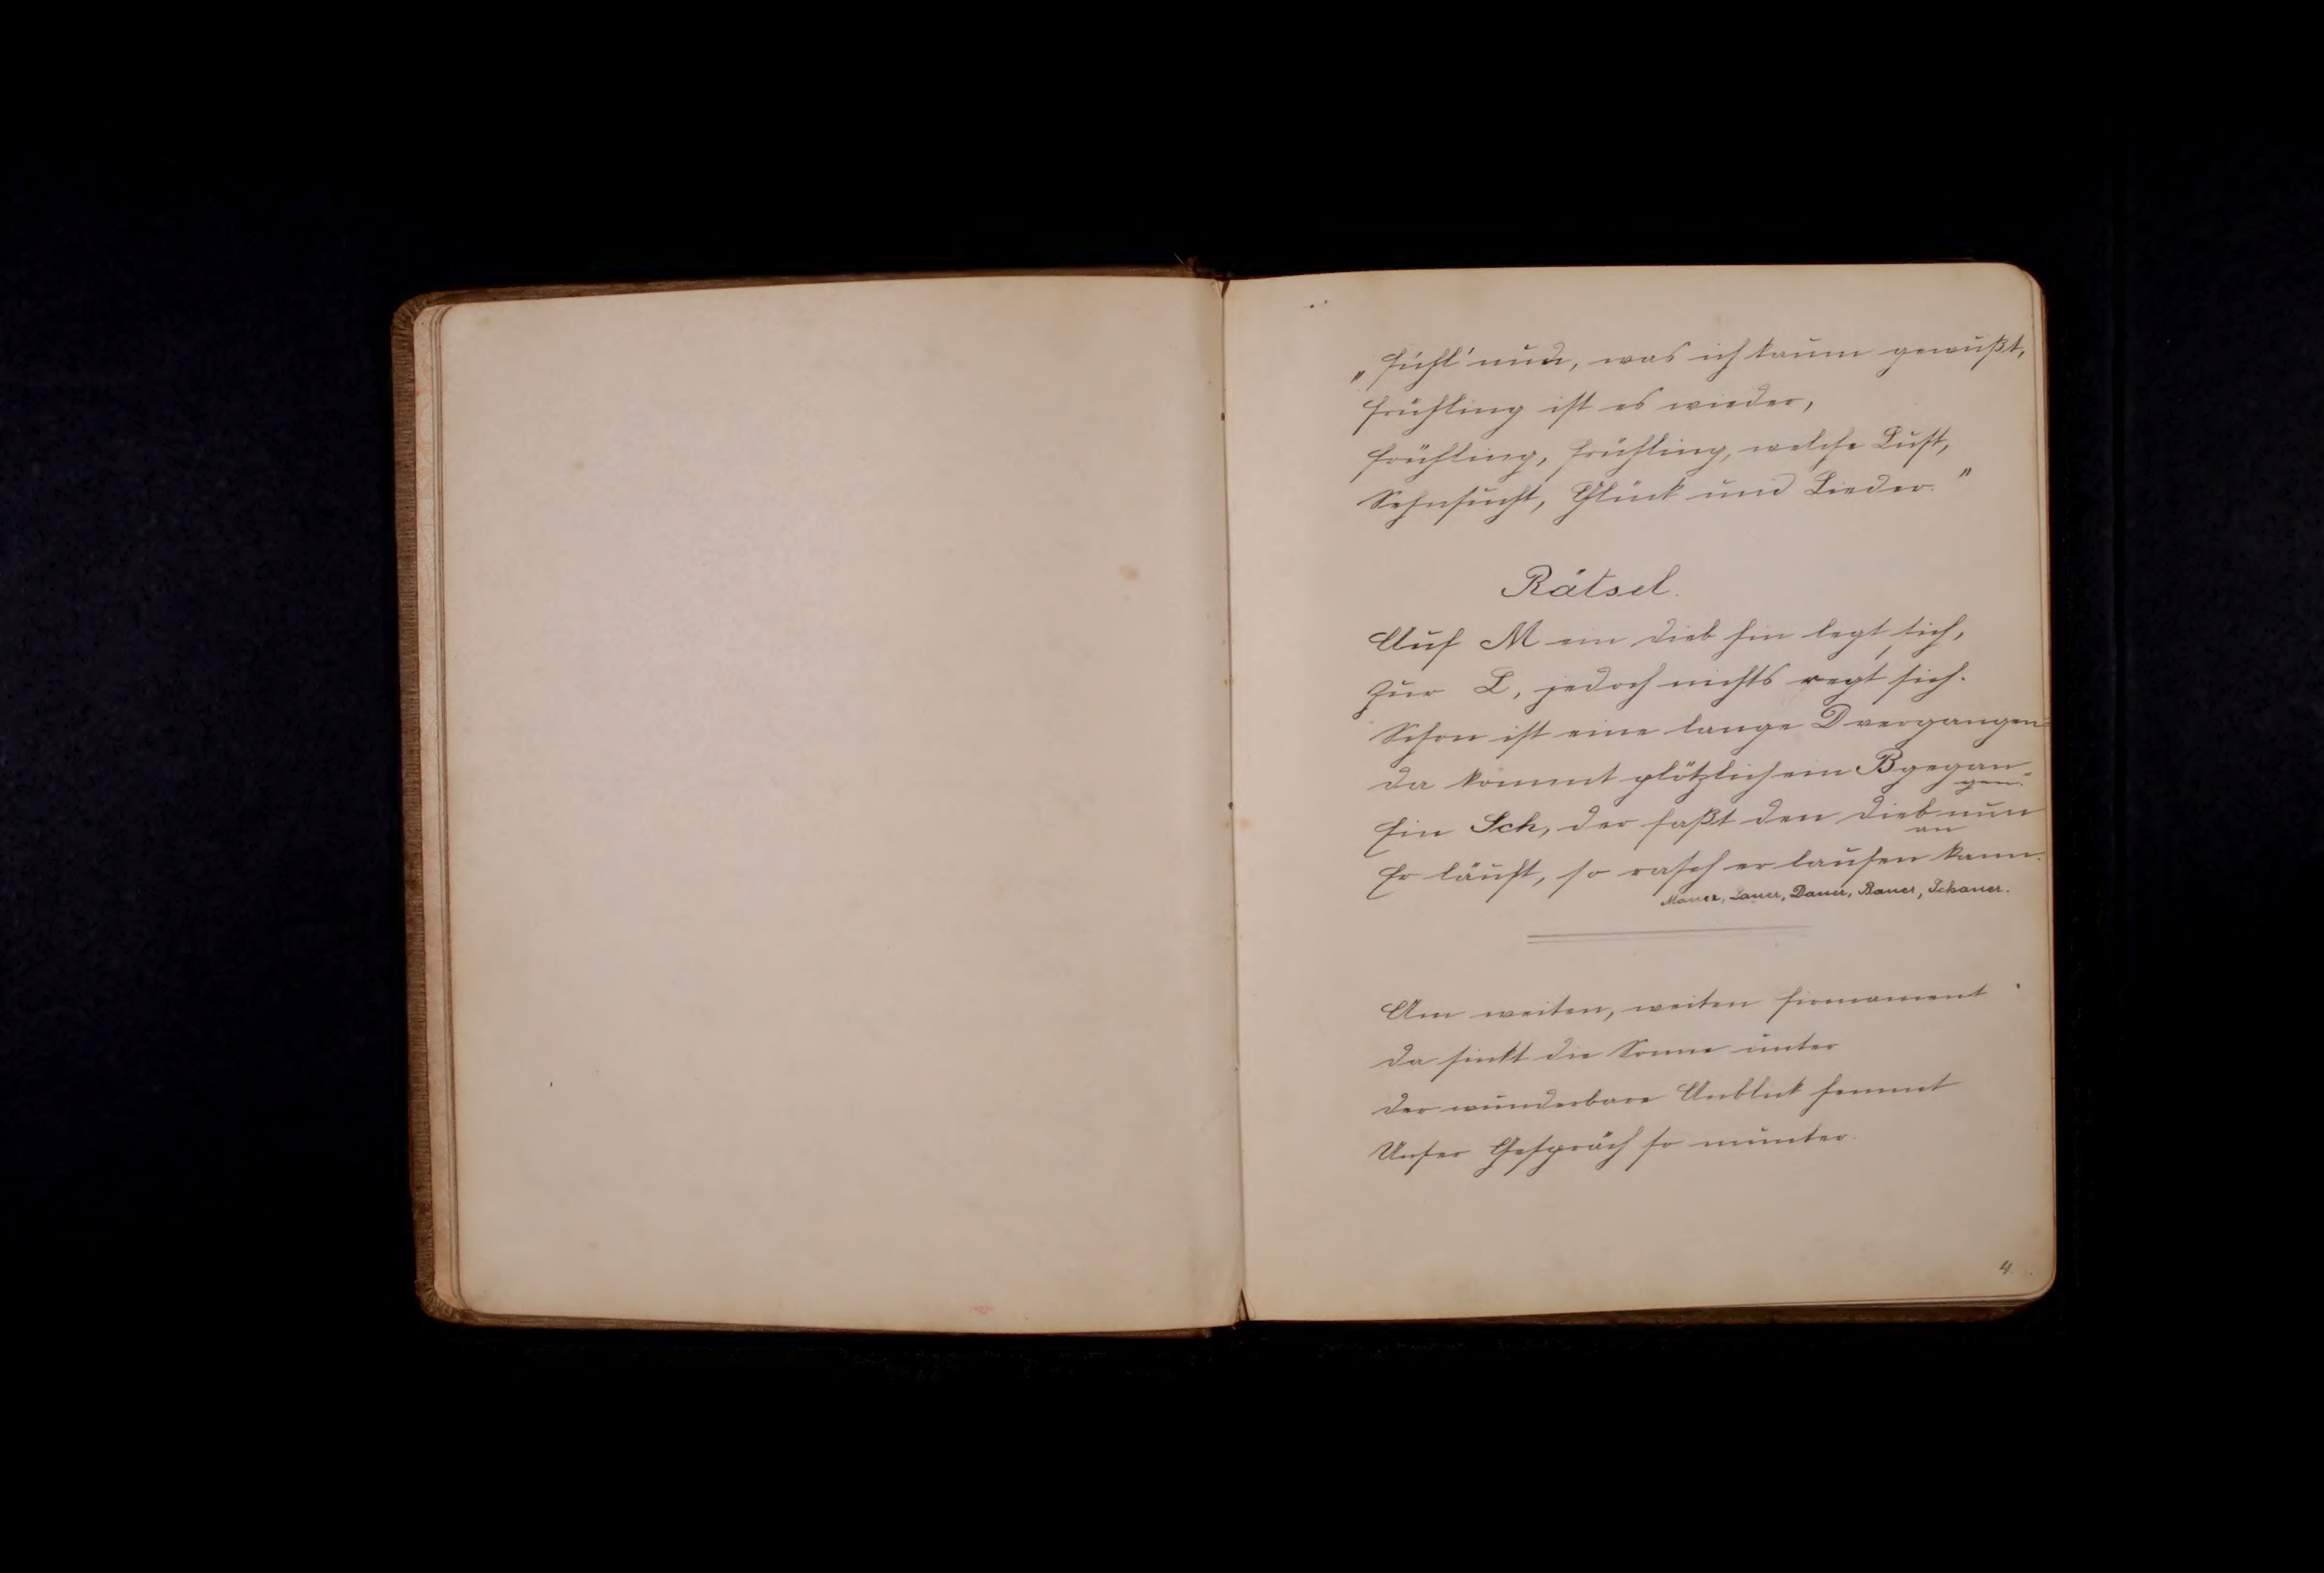 „Fühl' nun, was ich kaum gewußt,
Frühling ist es wieder,
Frühling, Frühling, welche Lust,
Sehnsucht, Glück und Lieder."
Rätsel.
Auf M ein Dieb hin legt sich,
Zur L, jedoch nichts regt sich.
Schon ist eine lange D vergangen
Da kommt plötzlich ein B gegan-
gen.
Ein Sch, der faßt den Dieb nun
an
Er läuft, so rasch er laufen kann.
Mauer, Lauer, Dauer, Bauer, Schauer.
Am weiten, weiten Firmament
Da sinkt die Sonne unter
Der wunderbare Anblick hemmt
Unser Gespräch so munter.
4.